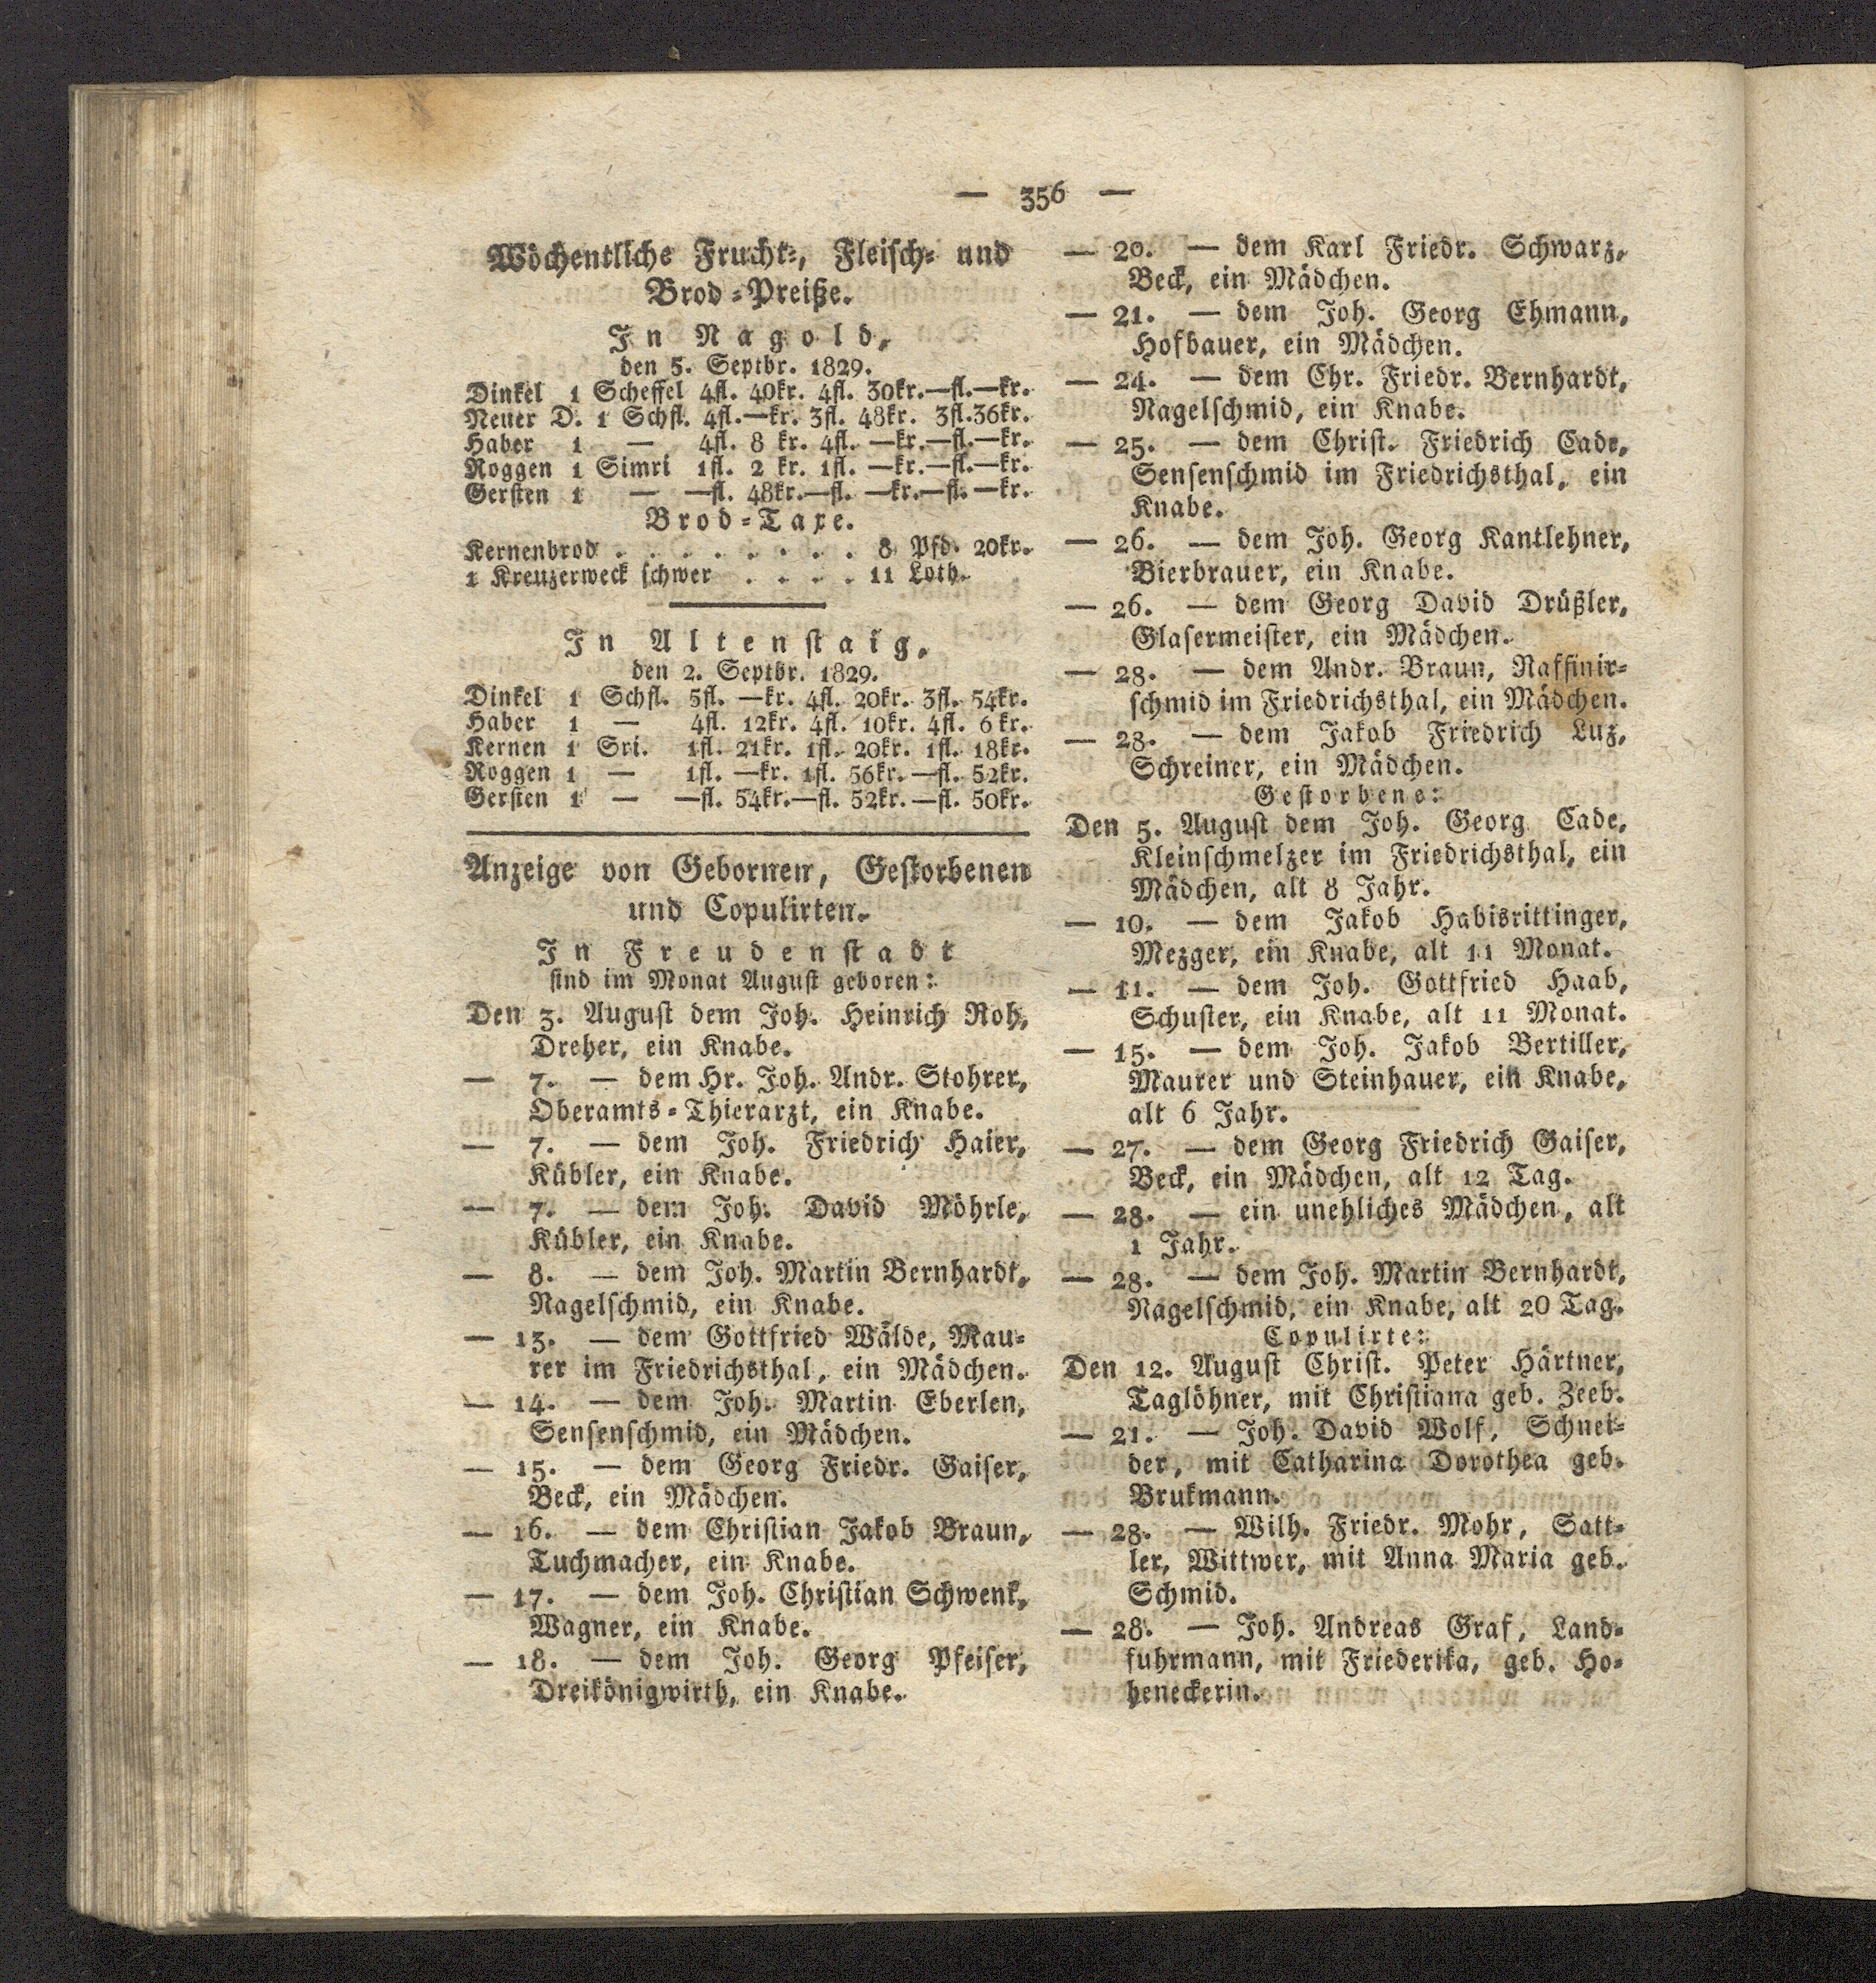 — 356 —
Wöchentliche Frucht-, Fleisch- und
Brod-Preiße.
In Nagold,
den 5. Septbr. 1829.
Dinkel 1 Scheffel 4fl. 40kr. 4fl. 30kr.—fl.—kr.
Neuer D. 1 Schfl. 4fl.—kr. 3fl. 48kr. 3fl.36kr.
Haber 1 — 4fl. 8 kr. 4fl. —kr.—fl.—kr.
Roggen 1 Simri 1fl. 2 kr. 1fl. —kr.—fl.—kr.
Gersten 1 — —fl. 48kr.—fl. —kr.—fl.—kr.
Brod-Taxe.
Kernenbrod . . . . . . . . 8 Pfd. 20kr.
1 Kreuzerweck schwer . . . . 11 Loth.
In Altenstaig,
den 2. Septbr. 1829.
Dinkel 1 Schfl. 5fl. —kr. 4fl. 20kr. 3fl. 54kr.
Haber 1 — 4fl. 12kr. 4fl. 10kr. 4fl. 6kr.
Kernen 1 Sri. 1fl. 21kr. 1fl. 20kr. 1fl. 18kr.
Roggen 1 — 1fl. —kr. 1fl. 56kr.—fl. 52kr.
Gersten 1 — —fl. 54kr.—fl. 52kr.—fl. 50kr.
Anzeige von Gebornen, Gestorbenen
und Copulirten.
In Freudenstadt
sind im Monat August geboren:
Den 3. August dem Joh. Heinrich Roh,
Dreher, ein Knabe.
— 7. — dem Hr. Joh. Andr. Stohrer,
Oberamts-Thierarzt, ein Knabe.
— 7. — dem Joh. Friedrich Haier,
Kübler, ein Knabe.
— 7. — dem Joh. David Möhrle,
Kübler, ein Knabe.
— 8. — dem Joh. Martin Bernhardt,
Nagelschmid, ein Knabe.
— 13. — dem Gottfried Wälde, Mau-
rer im Friedrichsthal, ein Mädchen.
— 14. — dem Joh. Martin Eberlen,
Sensenschmid, ein Mädchen.
— 15. — dem Georg Friedr. Gaiser,
Beck, ein Mädchen.
— 16. — dem Christian Jakob Braun,
Tuchmacher, ein Knabe.
— 17. — dem Joh. Christian Schwenk,
Wagner, ein Knabe.
— 18. — dem Joh. Georg Pfeifer,
Dreikönigwirth, ein Knabe.
— 20. — dem Karl Friedr. Schwarz,
Beck, ein Mädchen.
— 21. — dem Joh. Georg Ehmann,
Hofbauer, ein Mädchen.
— 24. — dem Chr. Friedr. Bernhardt,
Nagelschmid, ein Knabe.
— 25. — dem Christ. Friedrich Cade,
Sensenschmid im Friedrichsthal, ein
Knabe.
— 26. — dem Joh. Georg Kantlehner,
Bierbrauer, ein Knabe.
— 26. — dem Georg David Drüßler,
Glasermeister, ein Mädchen.
— 28. — dem Andr. Braun, Raffinir-
schmid im Friedrichsthal, ein Mädchen.
— 28. — dem Jakob Friedrich Luz,
Schreiner, ein Mädchen.
Gestorbene:
Den 5. August dem Joh. Georg Cade,
Kleinschmelzer im Friedrichsthal, ein
Mädchen, alt 8 Jahr.
— 10. — dem Jakob Habisrittinger,
Mezger, ein Knabe, alt 11 Monat.
— 11. — dem Joh. Gottfried Haab,
Schuster, ein Knabe, alt 11 Monat.
— 15. — dem Joh. Jakob Bertiller,
Maurer und Steinhauer, ein Knabe,
alt 6 Jahr.
— 27. — dem Georg Friedrich Gaiser,
Beck, ein Mädchen, alt 12 Tag.
— 28. — ein unehliches Mädchen, alt
1 Jahr.
— 28. — dem Joh. Martin Bernhardt,
Nagelschmid, ein Knabe, alt 20 Tag.
Copulirte:
Den 12. August Christ. Peter Härtner,
Taglöhner, mit Christiana geb. Zeeb.
— 21. — Joh. David Wolf, Schnei-
der, mit Catharina Dorothea geb.
Brukmann.
— 28. — Wilh. Friedr. Mohr, Satt-
ler, Wittwer, mit Anna Maria geb.
Schmid.
— 28. — Joh. Andreas Graf, Land-
fuhrmann, mit Friederika, geb. Ho-
heneckerin.